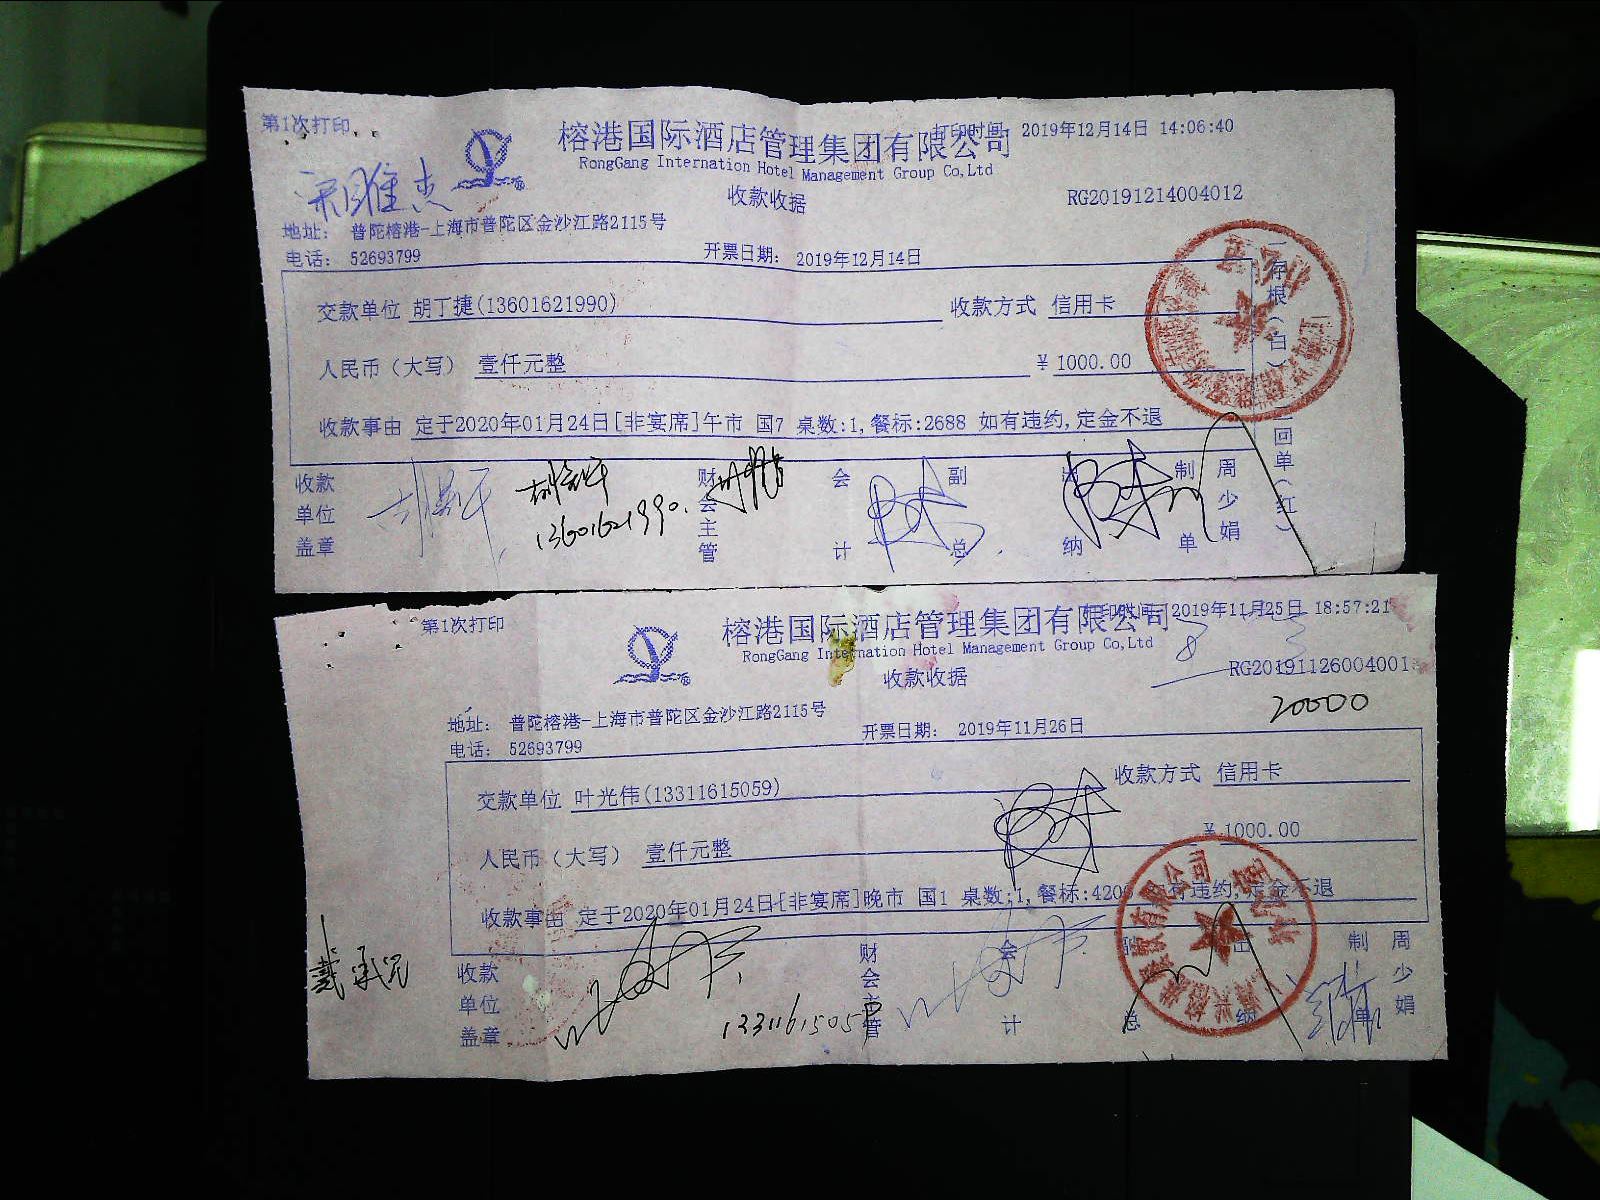 第1次打印
榕港国际酒店管理集团有限公司
打印时间 2019年12月14日 14:06:40
RongGang Internation Hotel Management Group Co,Ltd
收款收据
RG20191214004012
地址: 普陀榕港-上海市普陀区金沙江路2115号
电话: 52693799
开票日期: 2019年12月14日
交款单位 胡丁捷(13601621990) 收款方式 信用卡
人民币(大写) 壹仟元整 ¥ 1000.00
收款事由 定于2020年01月24日[非宴席]午市 国7 桌数:1,餐标:2688 如有违约,定金不退
一存根(白)
回单(红)
收款单位盖章
13601621990.
财会主管
会计
副总
出纳
制单
周少娟
第1次打印
榕港国际酒店管理集团有限公司
打印时间 2019年11月25日 18:57:21
RongGang Internation Hotel Management Group Co,Ltd
收款收据
8
RG20191126004001
20000
地址: 普陀榕港-上海市普陀区金沙江路2115号
电话: 52693799
开票日期: 2019年11月26日
交款单位 叶光伟(13311615059) 收款方式 信用卡
人民币(大写) 壹仟元整 ¥ 1000.00
收款事由 定于2020年01月24日[非宴席]晚市 国1 桌数:1,餐标:420 如有违约,定金不退
收款单位盖章
财会主管
会计
副总
出纳
制单
周少娟